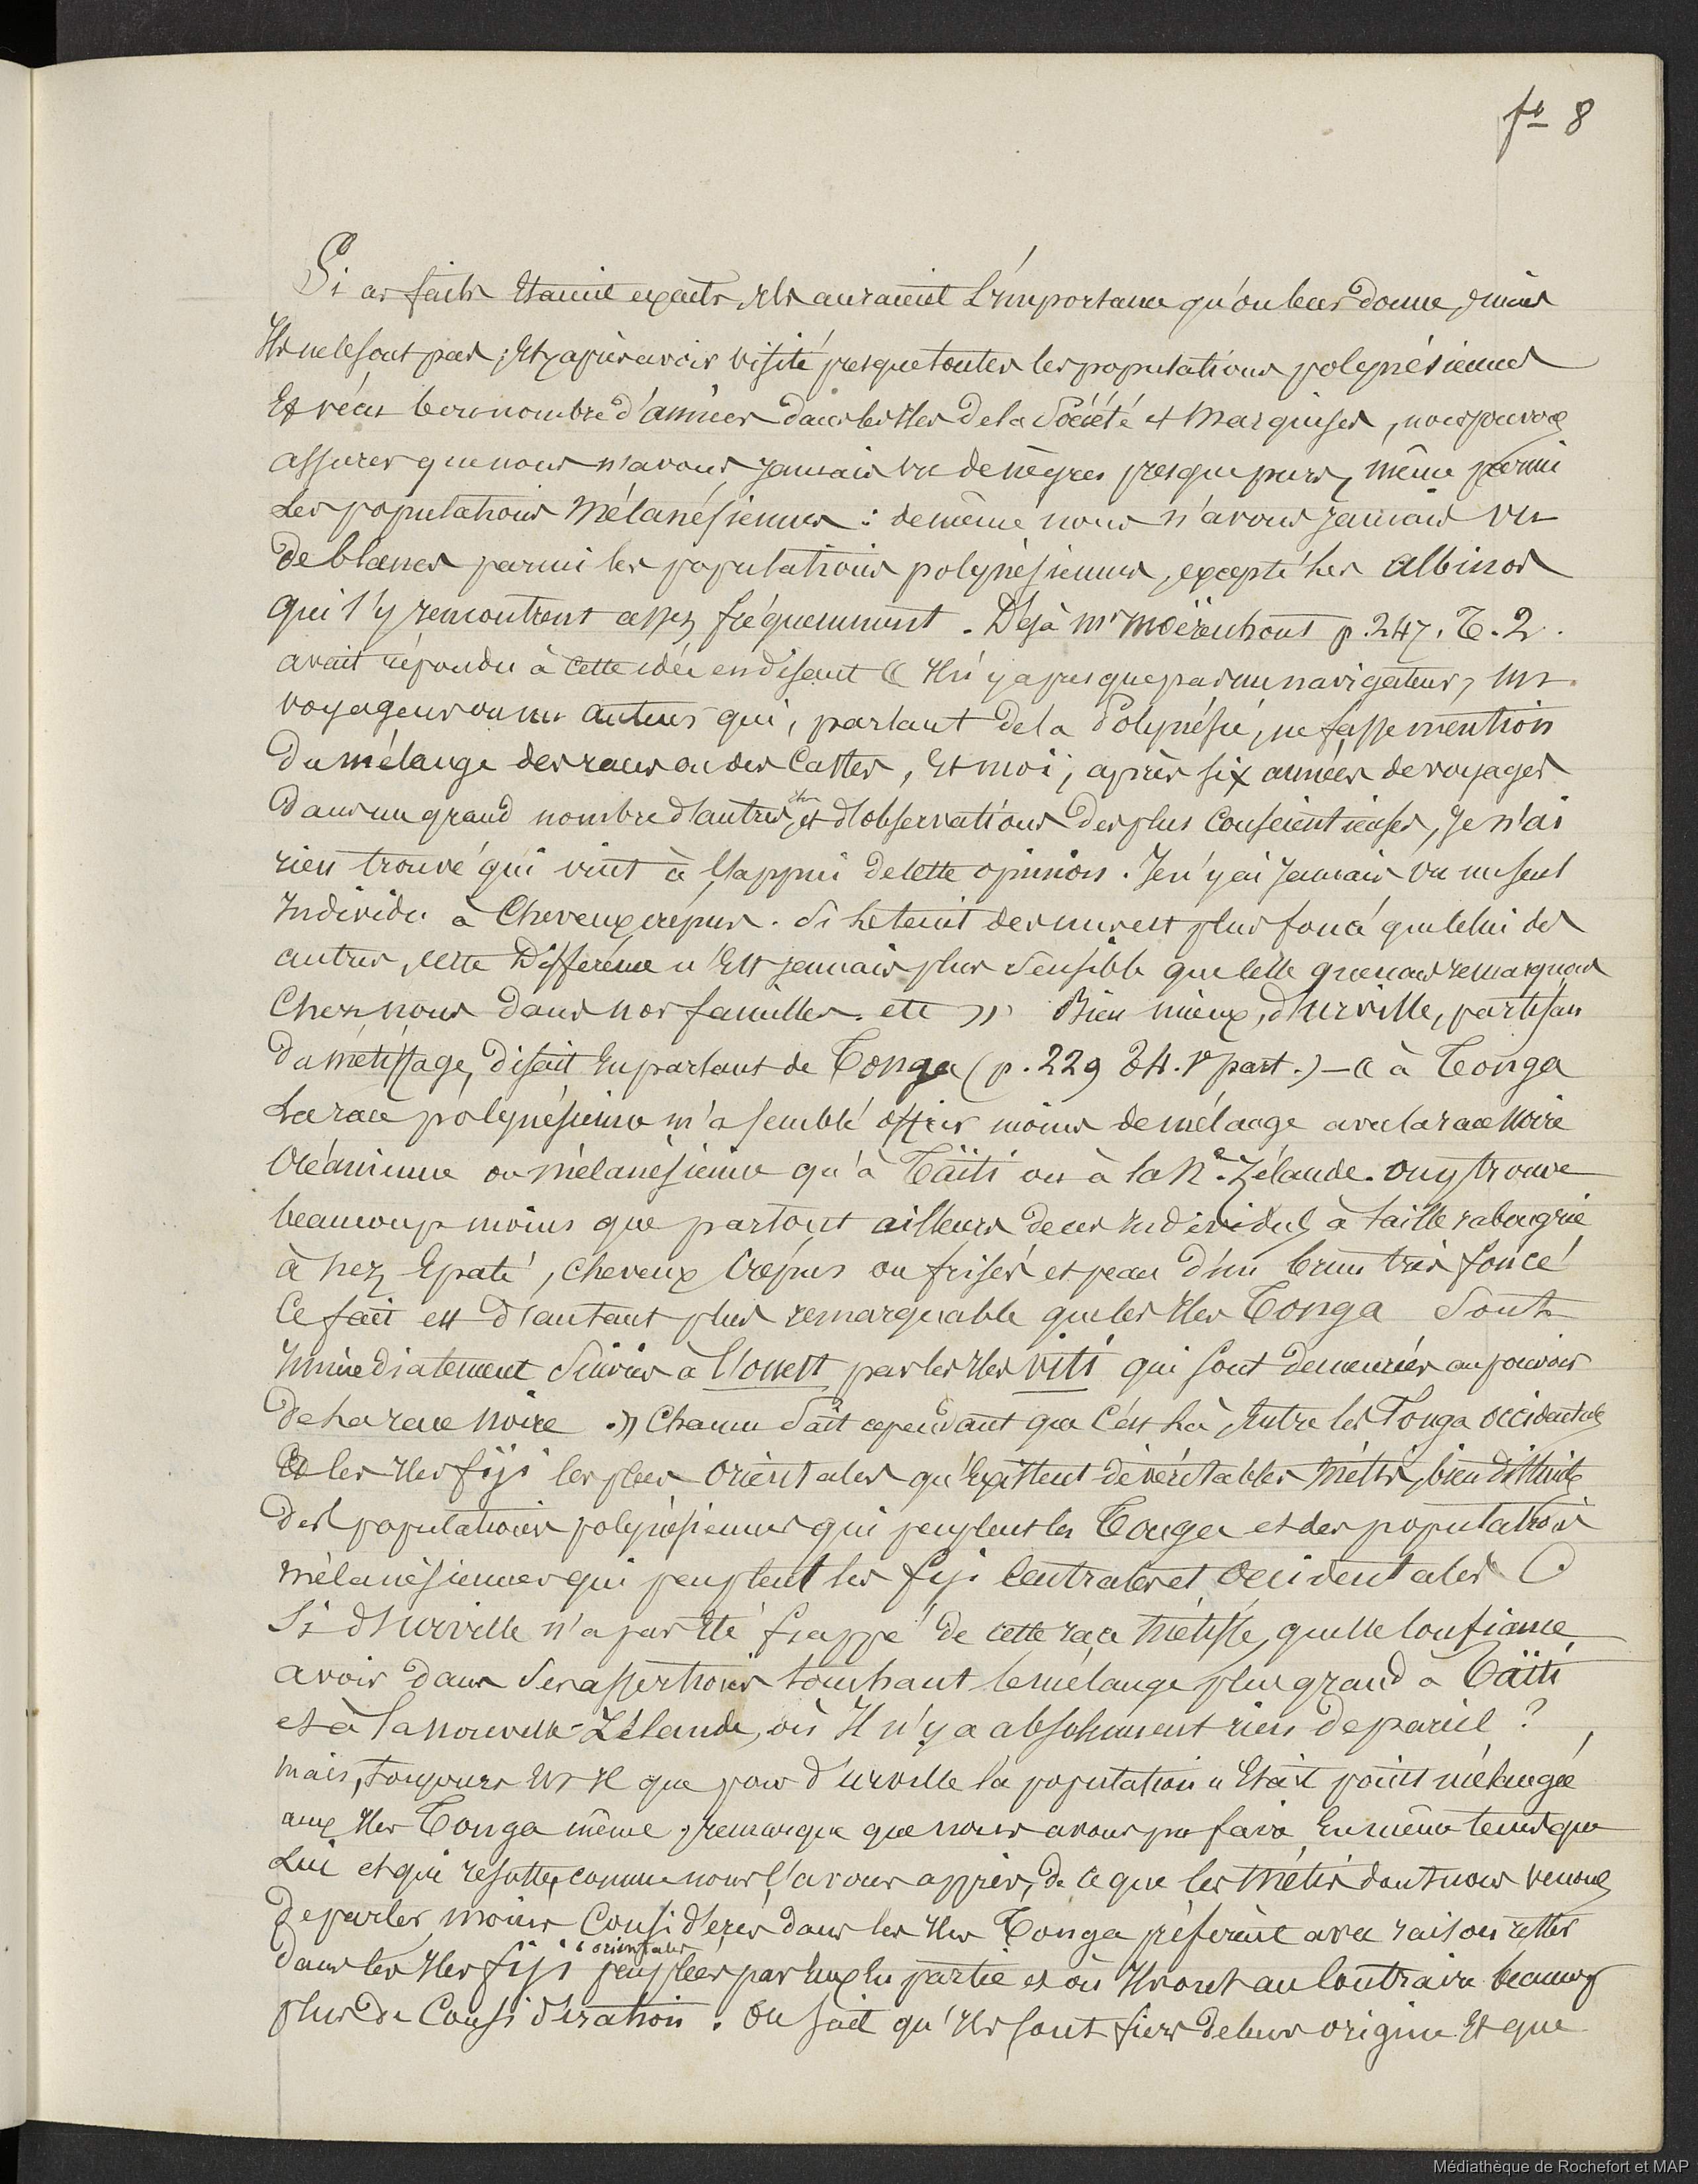 f° 8
Si ces faits étaient exacts, ils auraient l'importance qu'on leur donne, mais
Ils ne le sont pas ; Et, après avoir visité presque toutes les populations polynésiennes
Et vécu bon nombre d'années dans les Iles de la Société et Marquises, nous pouvons
assurer que nous n'avons jamais vu de nègres presque purs, même parmi
Les populations Mélanésiennes : de même nous n'avons jamais vu
De blancs parmi les populations polynésiennes, excepté les Albinos
qui s'y rencontrent assez fréquemment. Déjà Mr Moërenhout p. 247. T. 2.
avait répondu à cette idée en disant « Il n'y a presque pas un navigateur, un
voyageur ou un auteur qui, parlant de la Polynésie, ne fasse mention
Du mélange des races ou des Castes, Et moi, après six années de voyages
Dans un grand nombre d'autres, et d'observations des plus consciencieuses, Je n'ai
rien trouvé qui vint à l'appui de cette opinion. Je n'y ai Jamais vu un seul
Individu à Cheveux crépus. Si le teint des uns est plus foncé que celui des
autres, cette Différence n'Est jamais plus sensible que celle que nous remarquons
Chez nous dans nos familles. etc » Bien mieux, d'Urville, partisan
Du métissage, disait En parlant de Tonga (p. 229 T4. 1e part.) — « à Tonga
La race polynésienne m'a semblé offrir moins de mélange avec la race Noire
Océanienne ou mélanésienne qu'à Täïti ou à la Ne. Zélande. On y trouve
beaucoup moins que partout ailleurs de ces Individus à taille rabougrie
à nez Epaté, Cheveux Crépus ou frisés et peau d'un brun très foncé
Ce fait est d'autant plus remarquable que les Iles Tonga Sont
Immédiatement Suivies à l'ouest par les Iles Viti qui sont demeurées au pouvoir
De La race Noire .» Chacun Sait cependant que C'est Là, Entre les Tonga occidentales
Et les Iles fiji les plus Orientales qu'Existent de véritables Métis, bien distincts
Des populations polynésiennes qui peuplent les Tonga et des populations
mélanésiennes qui peuplent les fiji Centrales et Occidentales
Si d'Urville n'a pas Eté frappé de cette race Métisse, quelle Confiance
avoir dans Ses assertions touchant le mélange plus grand à Täïti
et à la Nouvelle-Zélande, où Il n'y a absolument rien de pareil ?
Mais, toujours Est Il que pour d'Urville la population n'Etait point mélangée
aux Iles Tonga même ; remarque que nous avons pu faire En même temps que
Lui et qui resulte, comme nous l'avons appris, de ce que les Métis dont nous venons
De parler, moins Considérés dans les Iles Tonga préfèrent avec raison rester
Dans les Iles fiji orientales peuplées par Eux En partie et où Ils ont au Contraire beaucoup
plus de Considération. On sait qu'Ils sont fiers de leur origine Et que
Médiathèque de Rochefort et MAP